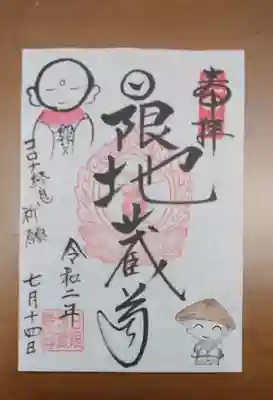 奉拝
限地蔵尊
令和二年
七月十四日
コロナ終息
祈願